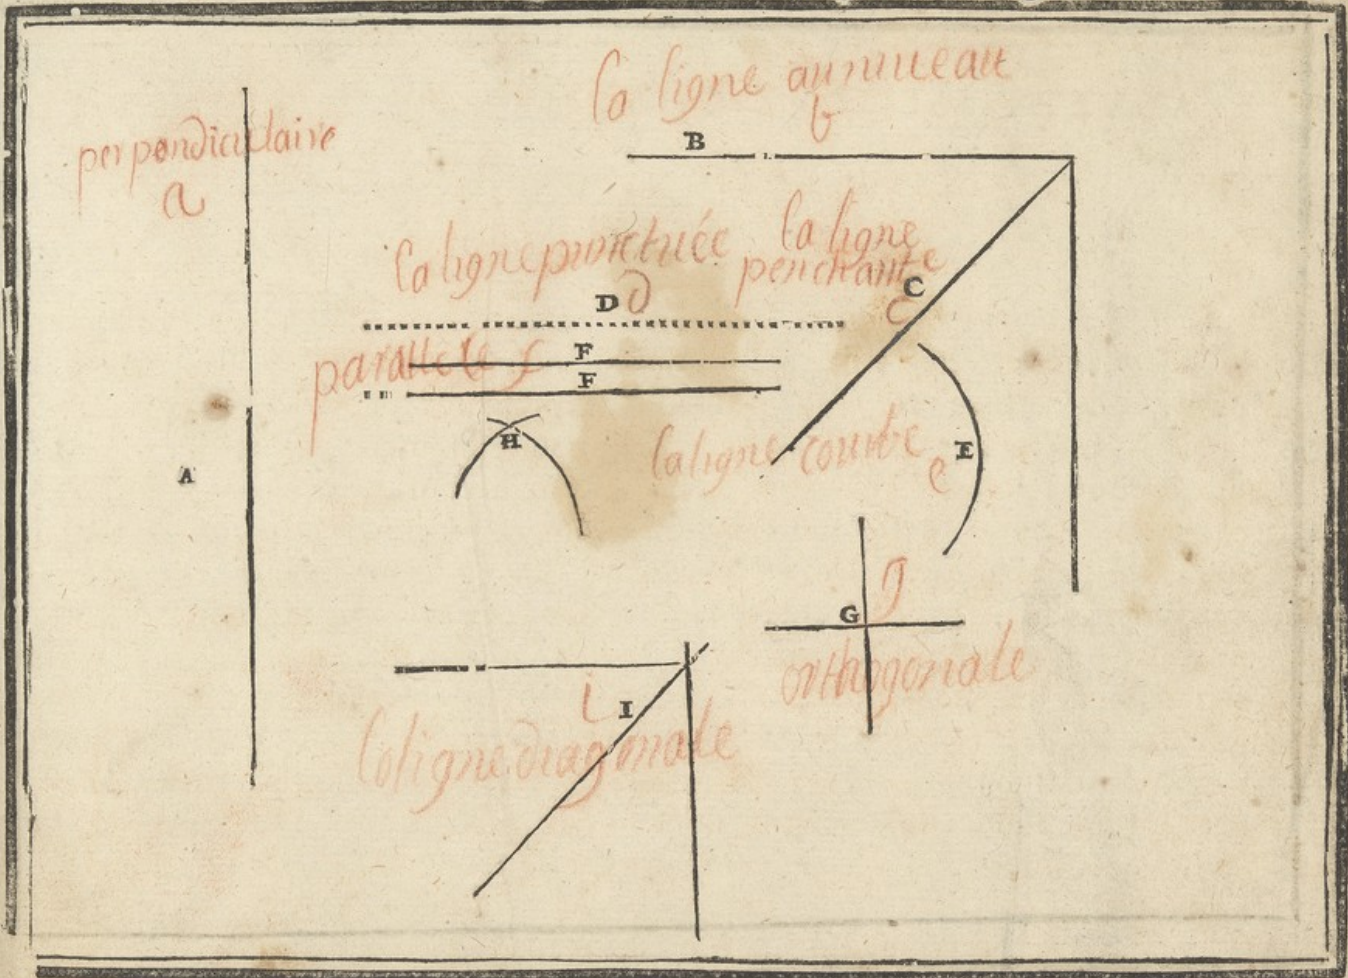 la ligne au niueau
b
B
perpendiculaire
a
la ligne punctuée
d
D
la ligne
penchante
c
C
parallele f
F
F
H
A
la ligne courbe
e
E
g
G
orthogonale
i
I
la ligne diagonale